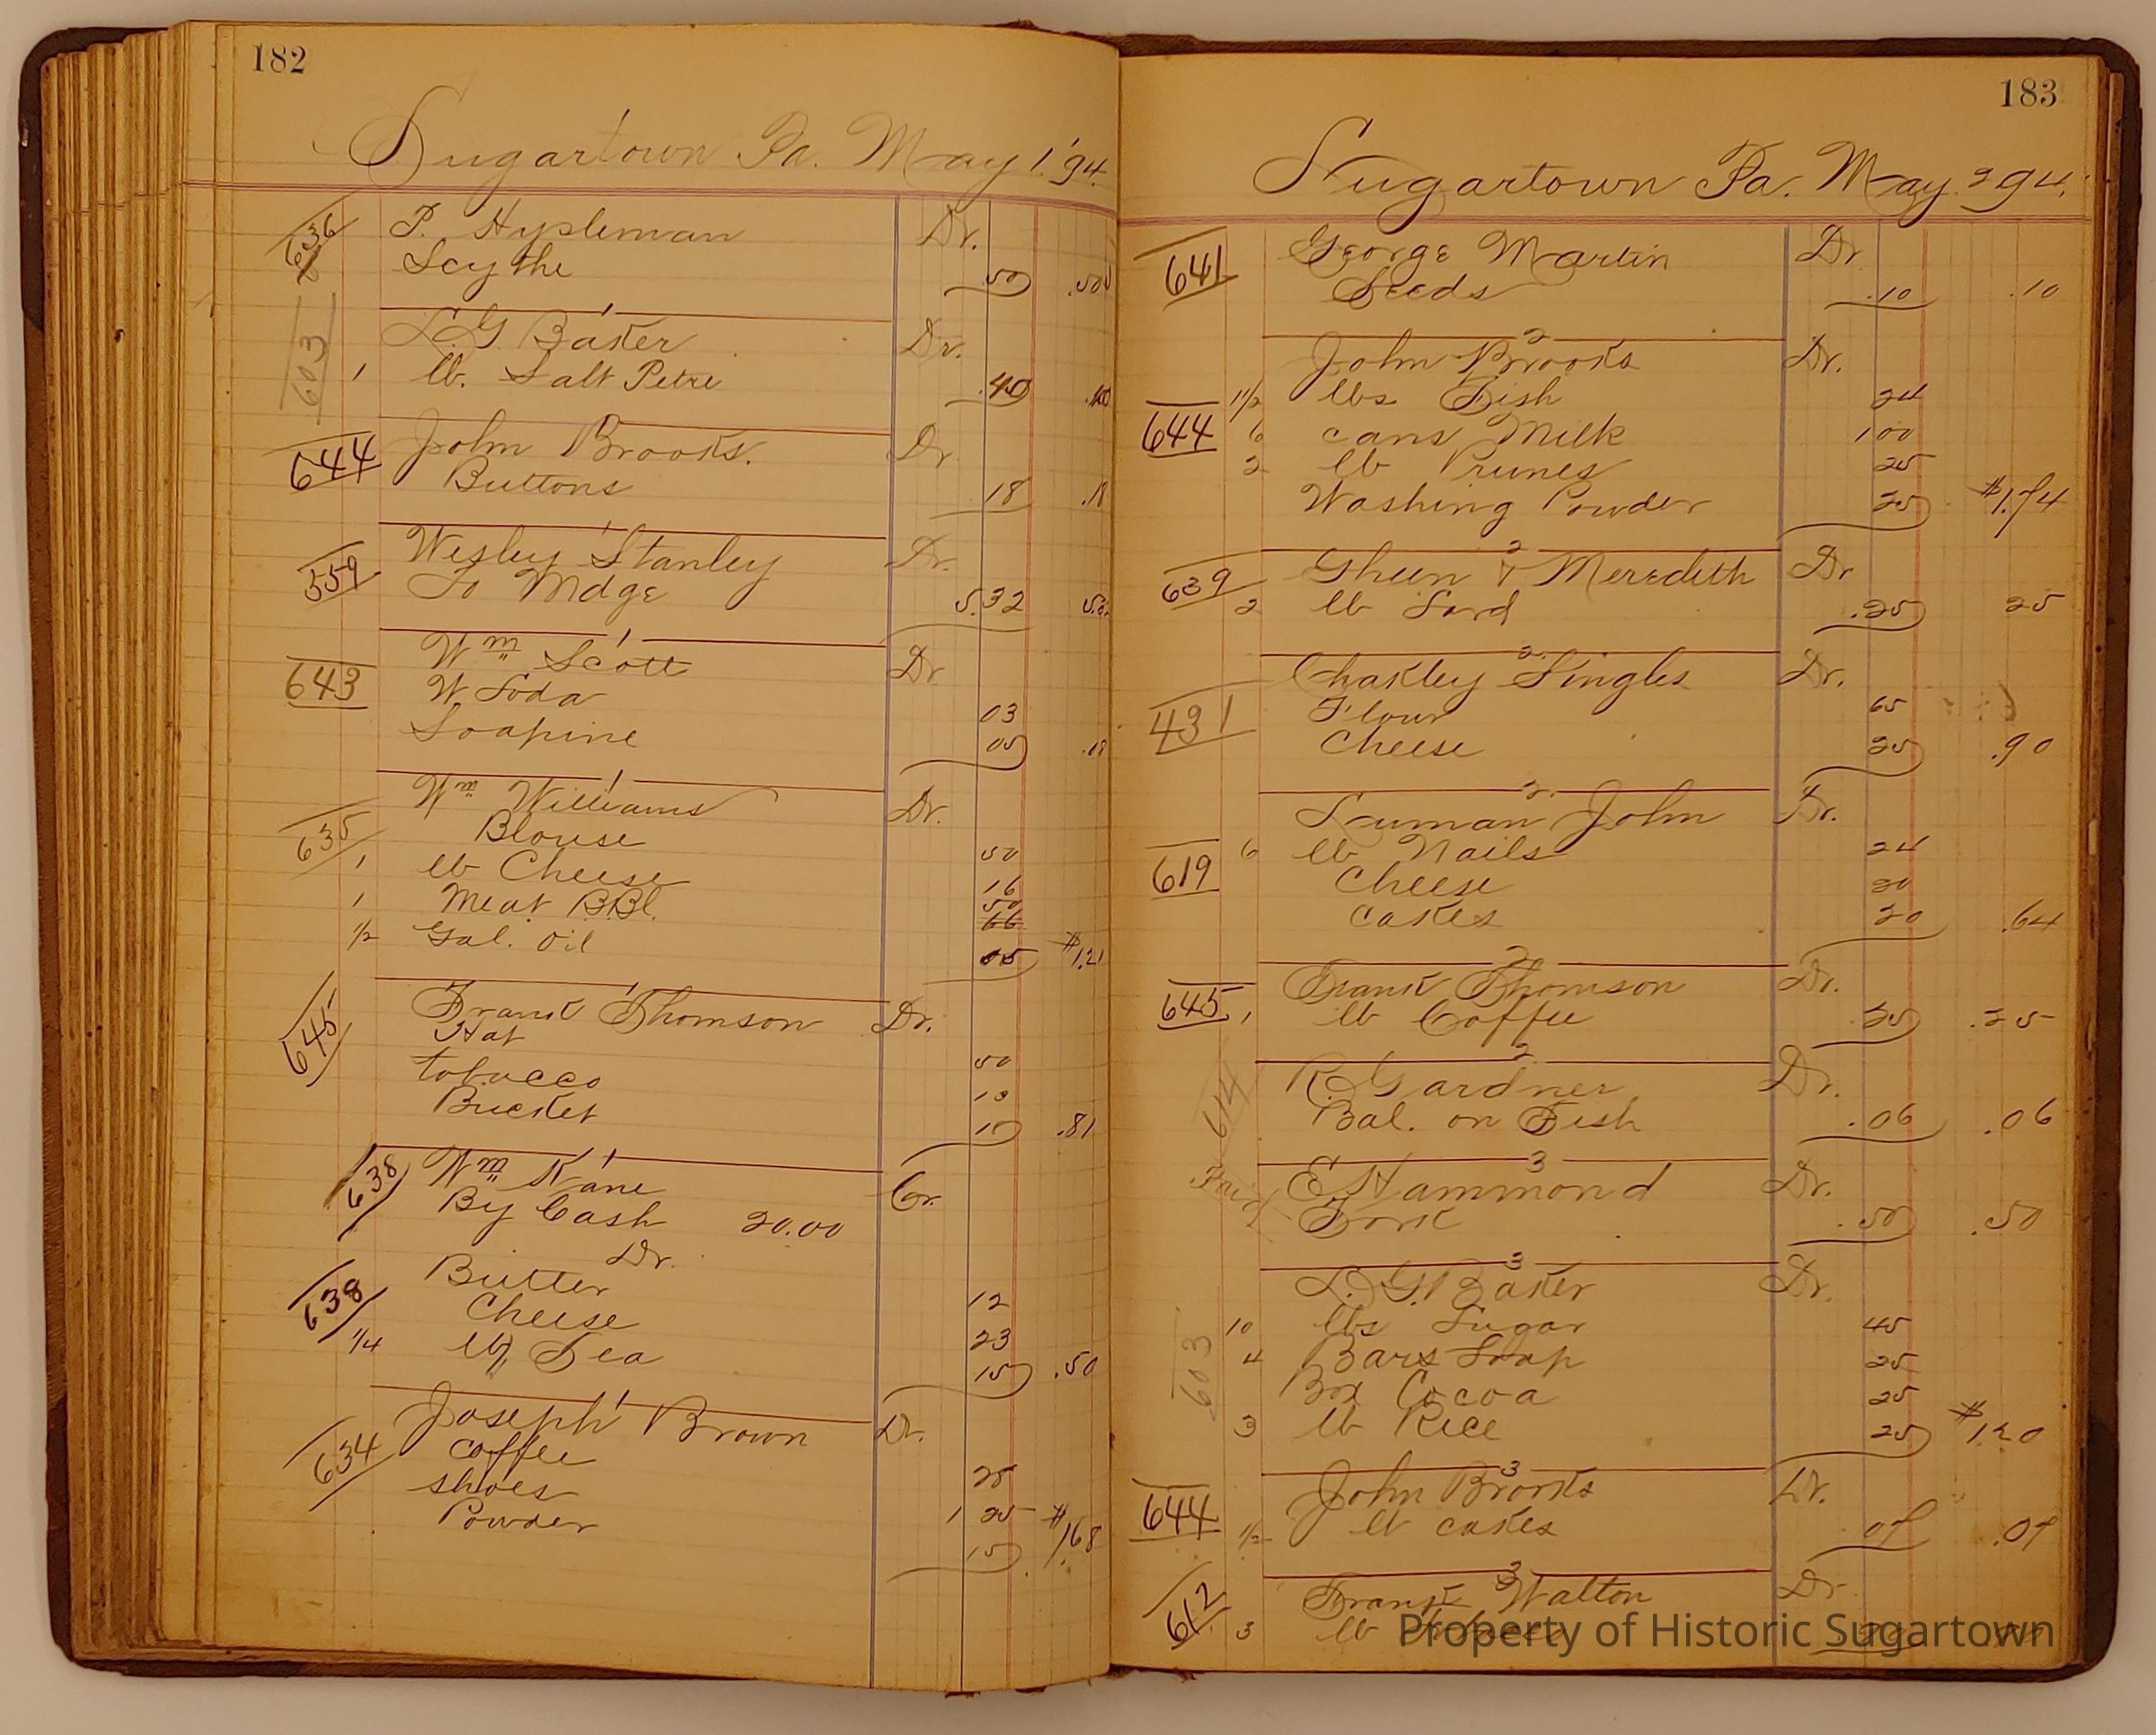 182
Sugartown Pa. May 1. '94.
636 P. Hypleman Dr.
Scythe .50 .50
1
603 L. G. Baker Dr.
1 lb. Salt Petre .40 .40
644 John Brooks. Dr
Buttons 18 .18
1
559 Wesley Stanley Dr.
To Mdge 5.32
1
643 Wm Scott Dr
W Soda 03
Soapine 05
1
635 Wm Williams Dr.
Blouse 50
1 lb Cheese 16
1 Meat BBl. 50
1/2 Gal. Oil 05 $1.21
1
645 Frank Thomson Dr.
Hat 50
tobacco
Bucket .81
1
638 Wm Kane Cr.
By Cash 20.00
Dr.
638 Butter 12
Cheese 23
1/4 lb Tea 15 .50
1
634 Joseph Brown Dr.
Coffee 25
shoes 1 25
Powder $1.68
183
Sugartown Pa. May 94.
641 George Martin Dr
Seeds .10 .10
2
John Brooks Dr.
1 1/2 lbs Fish 24
644 6 cans Milk 1 00
2 lb Prunes 25
Washing Powder 25 $1.74
2
639 Gheen & Meredith Dr
2 lb Lard .25 25
2
431 Chakley Singles Dr.
Flour 65
Cheese 25 .90
2
Luman John Dr.
619 6 lb Nails 24
Cheese 20
Cakes 20 .64
2
645 Frank Thomson Dr.
1 lb Coffee .25
2
614 R. Gardner Dr.
Bal. on Fish .06 .06
3
Paid E Hammond Dr.
Fork .50 .50
3
603 L. G. Baker Dr.
10 lbs Sugar 45
4 Bars Soap 25
Box Cocoa 25
3 lb Rice 25 $1.20
3
644 John Brooks Dr.
1/2 lb cakes 07 .07
3
612 Frank Walton Dr
3 lb
Property of Historic Sugartown